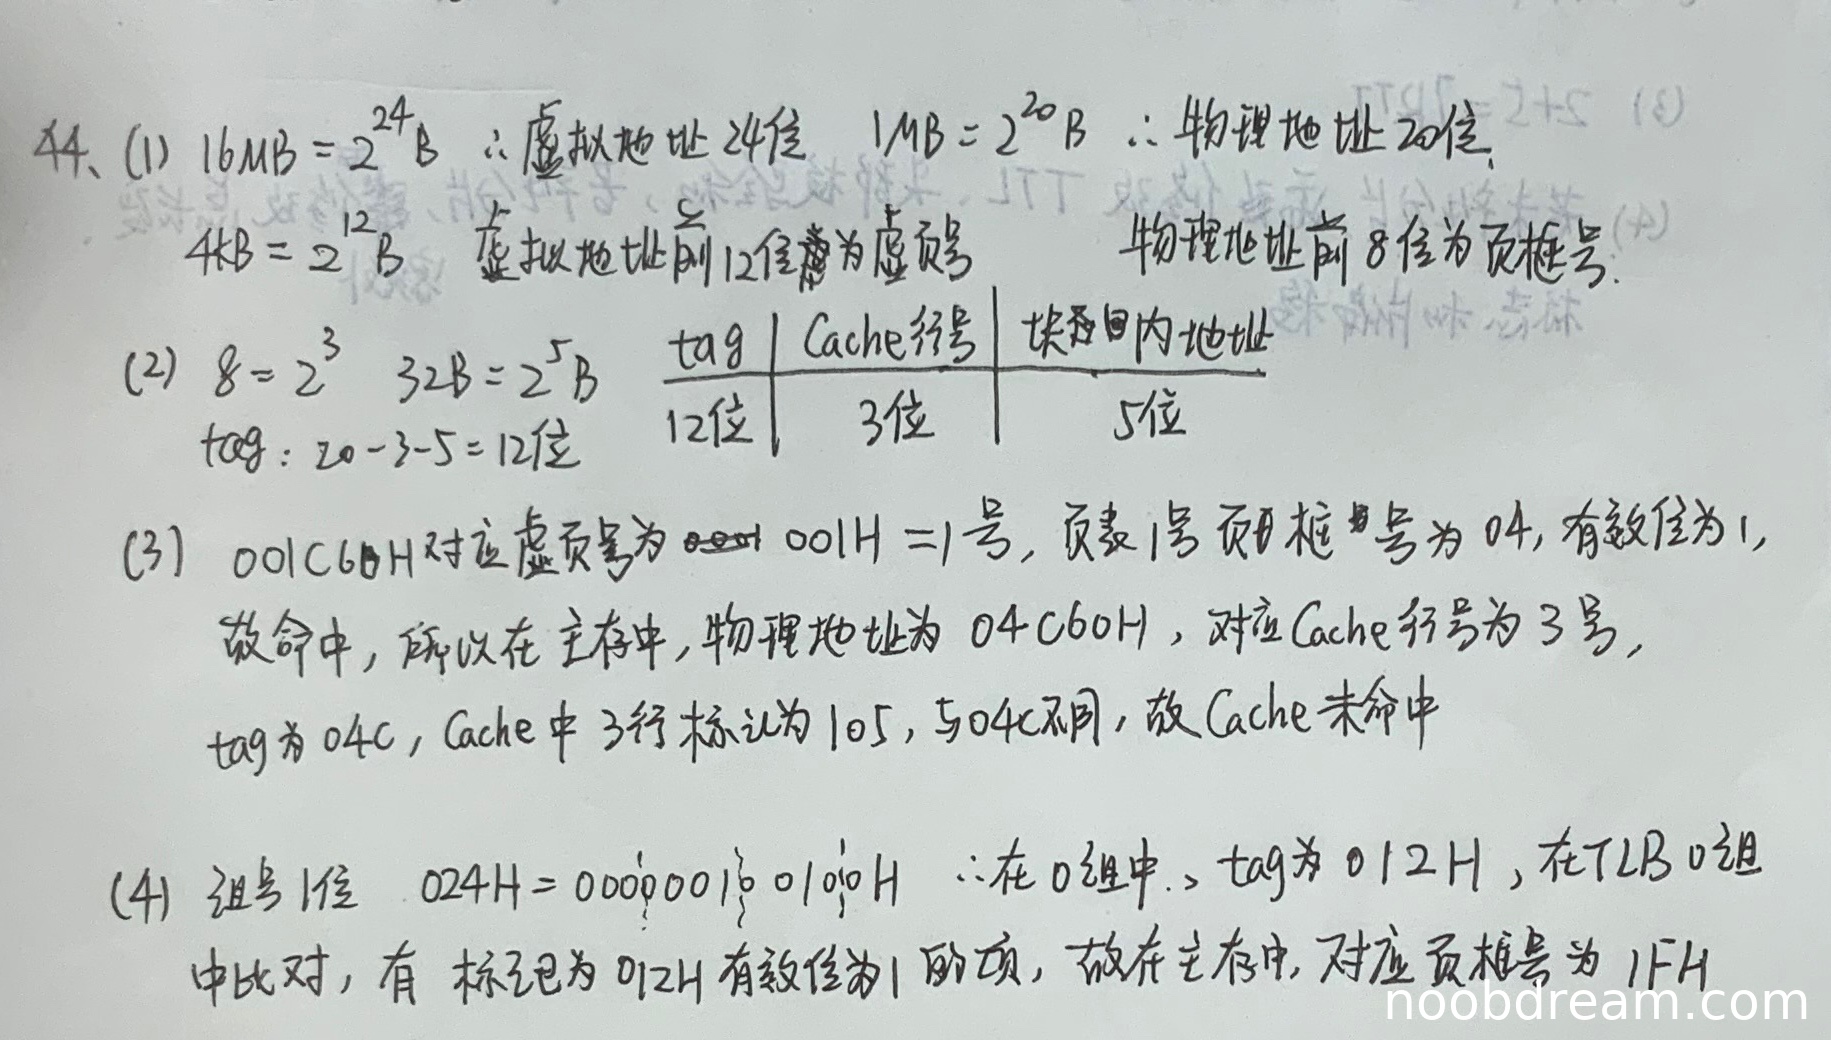 44、(1) 16MB = 2^24 B ∴虚拟地址24位 1MB = 2^20 B ∴物理地址20位.
4KB = 2^12 B 虚拟地址前12位为虚页号 物理地址前8位为页框号.
(2) 8 = 2^3 32B = 2^5 B
tag: 20-3-5=12位
tag | Cache行号 | 块内地址
12位 | 3位 | 5位
(3) 001C60H对应虚页号为 001H = 1号, 页表1号页框号为04, 有效位为1,
故命中, 所以在主存中, 物理地址为 04C60H, 对应Cache行号为3号,
tag为04C, Cache中3行标记为105, 与04C不同, 故Cache未命中
(4) 组号1位 024H = 0000 0010 0100H ∴在0组中、tag为012H, 在TLB 0组
中比对, 有标记为012H有效位为1的项, 故在主存中, 对应页框号为1FH
noobdream.com